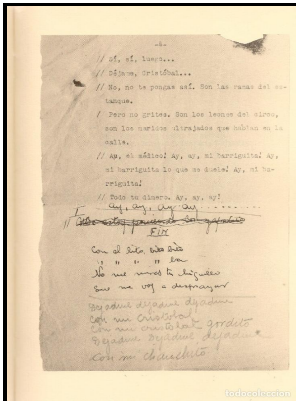 -4-
// Sí, sí, luego...
// Déjame, Cristóbal...
// No, no te pongas así. Son las ranas del es-
tanque.
/ Pero no grites. Son los leones del circo,
son los maridos ultrajados que hablan en la
calle.
// Ay, el médico! Ay, ay, mi barriguita! Ay,
mi barriguita lo que me duele! Ay, mi ba-
rriguita!
// Todo tu dinero. Ay, ay, ay!
Ay, Ay, Ay, Ay
FIN
Con el bito,
No me mires
que me voy a
dejadme dejadme dejadme
con mi Cristobal
con mi cristobal gordito
dejadme dejadme dejadme
con mi
todocoleccion